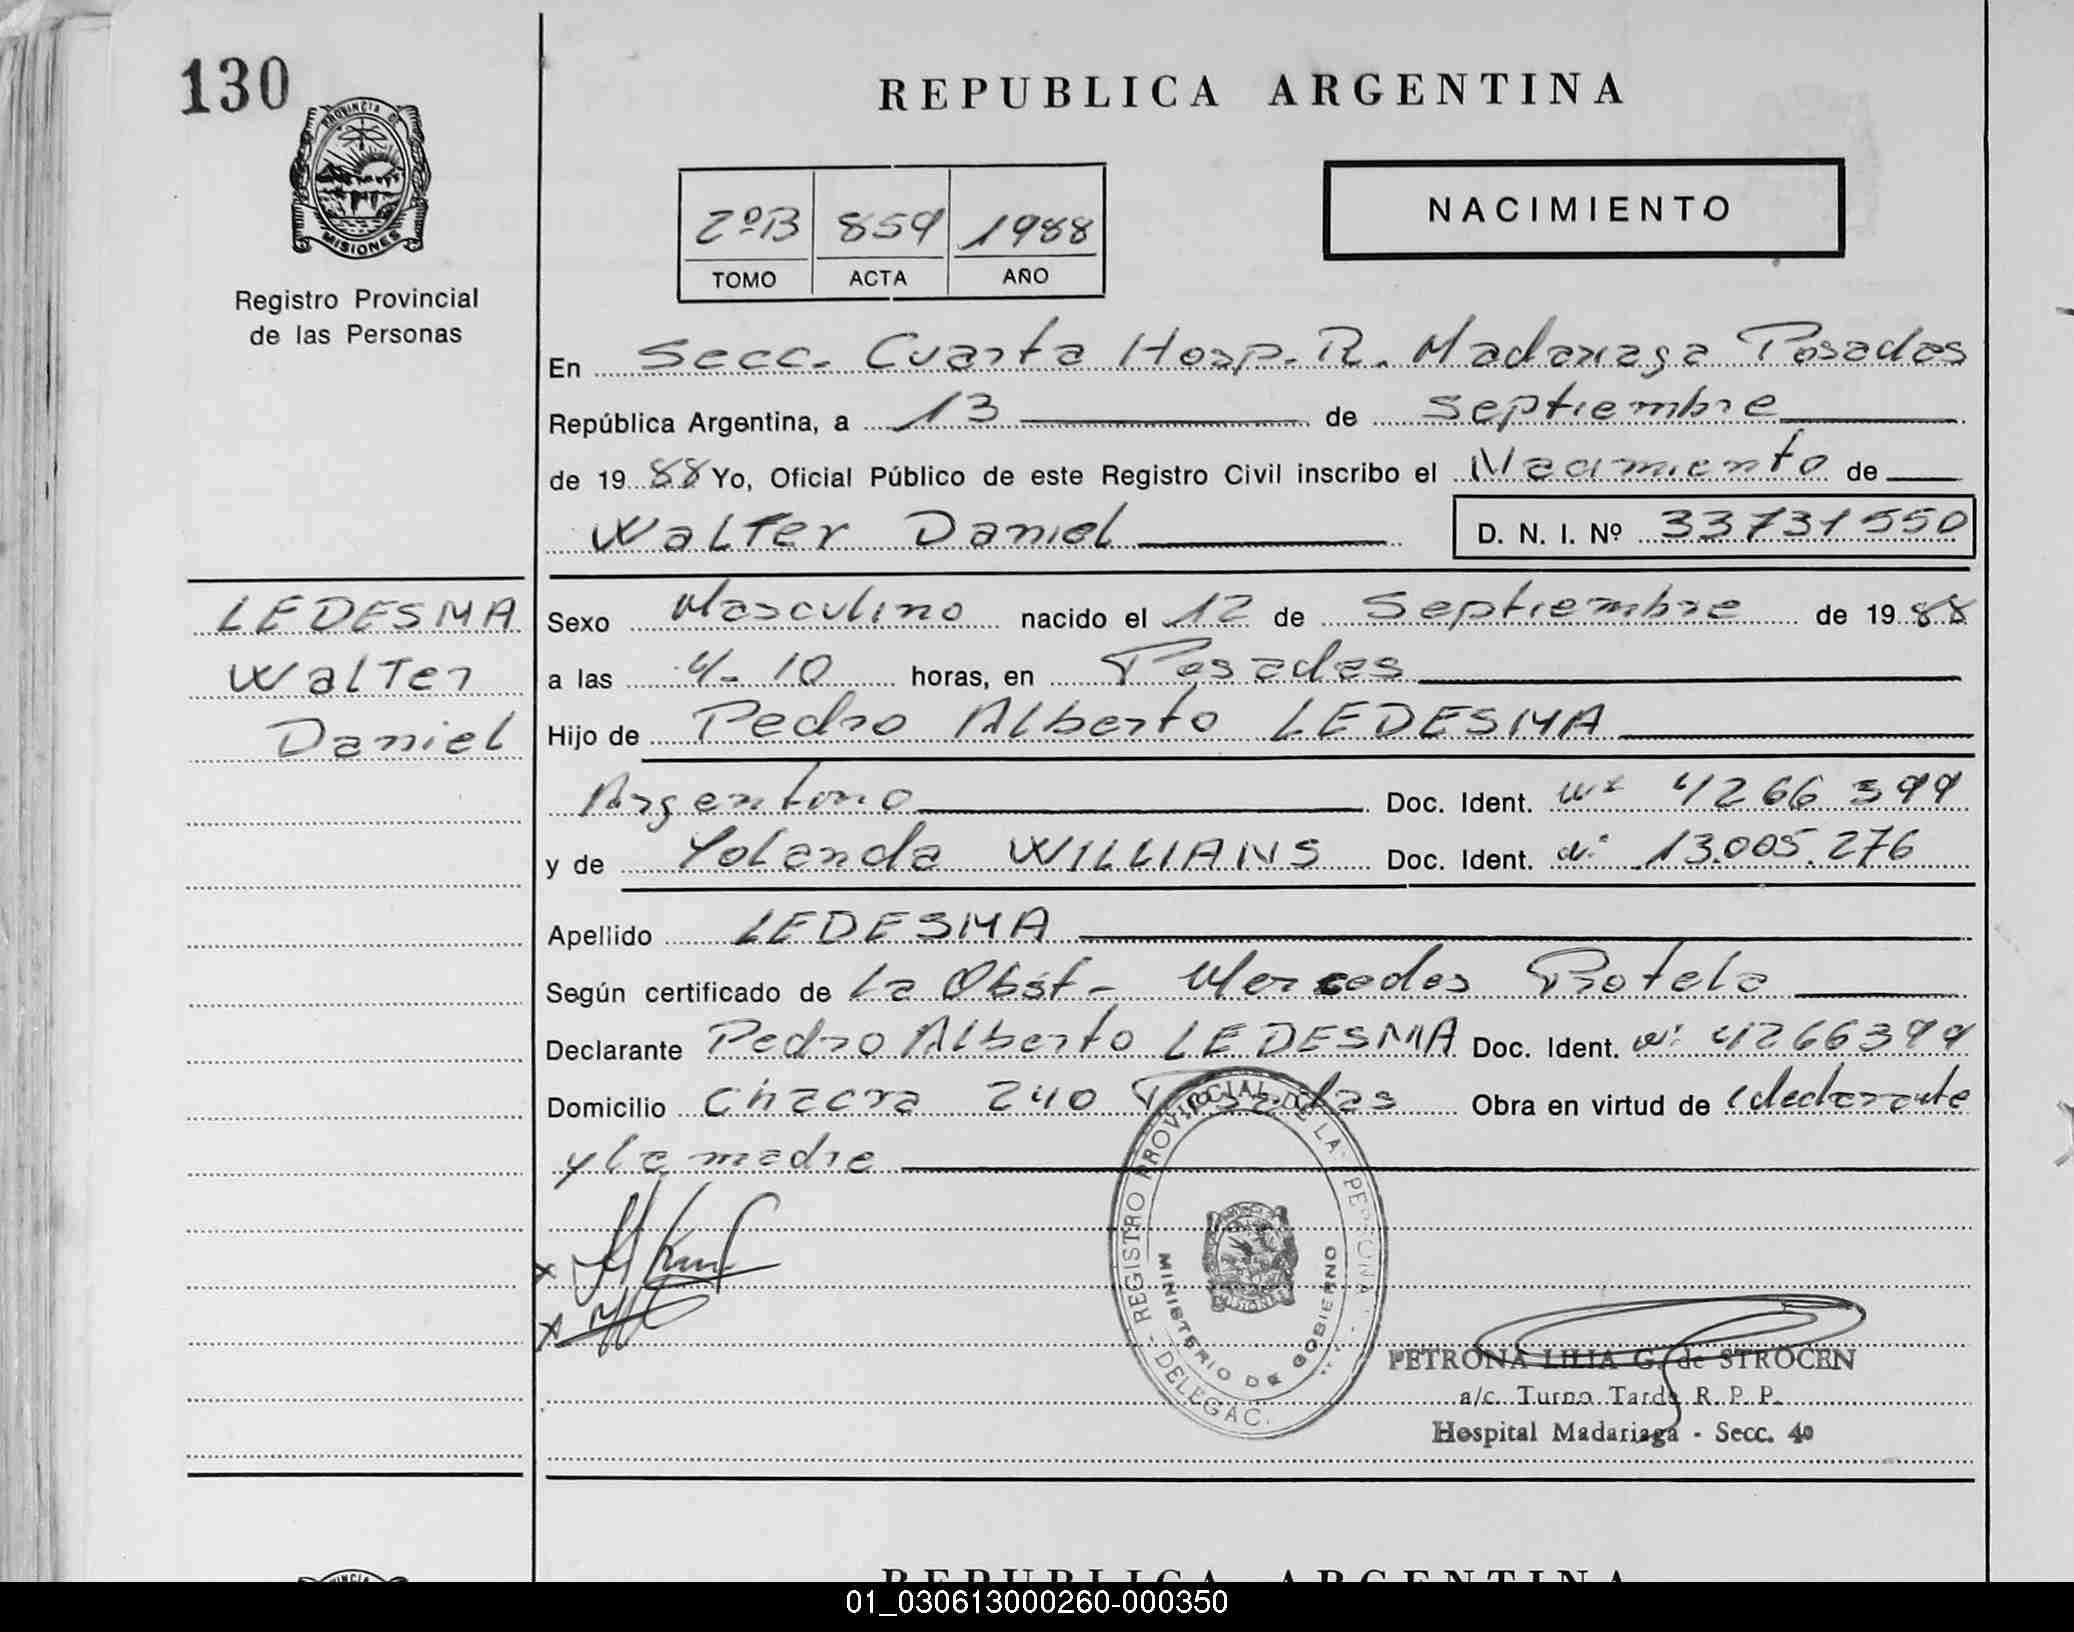 130
REPUBLICA ARGENTINA
PROVINCIA DE
MISIONES
NACIMIENTO
2ºB 859 1988
TOMO ACTA AÑO
Registro Provincial
de las Personas
En Secc. Cuarta Hosp. R. Madariaga Posadas
República Argentina, a 13 de septiembre
de 1988 Yo, Oficial Público de este Registro Civil inscribo el Nacimiento de
Walter Daniel D. N. I. Nº 33731550
LEDESMA
Walter
Daniel
Sexo Masculino nacido el 12 de Septiembre de 1988
a las 4-10 horas, en Posadas
Hijo de Pedro Alberto LEDESMA
Argentino Doc. Ident. Nº 4266399
y de Yolanda WILLIANS Doc. Ident. Nº 13.005.276
Apellido LEDESMA
Según certificado de La Obst- Mercedes Rotela
Declarante Pedro Alberto LEDESMA Doc. Ident. Nº 4266399
Domicilio chacra 240 Posadas Obra en virtud de declarante
y la madre
REGISTRO PROVINCIAL DE LA PERSONA
MINISTERIO DE GOBIERNO
DELEGAC.
PETRONA LILIA G. de STROCEN
a/c. Turno Tarde R. P. P.
Hospital Madariaga - Secc. 4º
REPUBLICA ARGENTINA
01_030613000260-000350